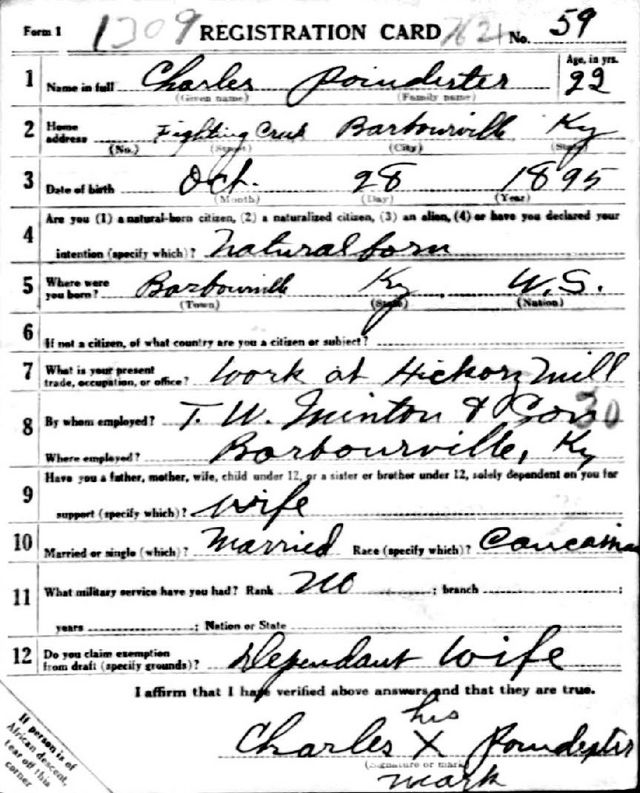 Form 1 1309 REGISTRATION CARD 7621 No. 59
1 Name in full Charles Poindexter Age, in yrs. 22
(Given name) (Family name)
2 Home address Fighting Creek Barbourville Ky
(No.) (Street) (City) (State)
3 Date of birth Oct. 28 1895
(Month) (Day) (Year)
4 Are you (1) a natural-born citizen, (2) a naturalized citizen, (3) an alien, (4) or have you declared your
intention (specify which)? Natural born
5 Where were you born? Barbourville Ky U.S.
(Town) (State) (Nation)
6 If not a citizen, of what country are you a citizen or subject?
7 What is your present trade, occupation, or office? Work at Hickory Mill
8 By whom employed? T. W. Minton & Son 30
Where employed? Barbourville, Ky
9 Have you a father, mother, wife, child under 12, or a sister or brother under 12, solely dependent on you for
support (specify which)? Wife
10 Married or single (which)? Married Race (specify which)? Caucasian
11 What military service have you had? Rank No ; branch ;
years ; Nation or State
12 Do you claim exemption from draft (specify grounds)? Dependant Wife
I affirm that I have verified above answers and that they are true.
his
Charles X Poindexter
(Signature or mark)
mark
If person is of
African descent,
tear off this
corner